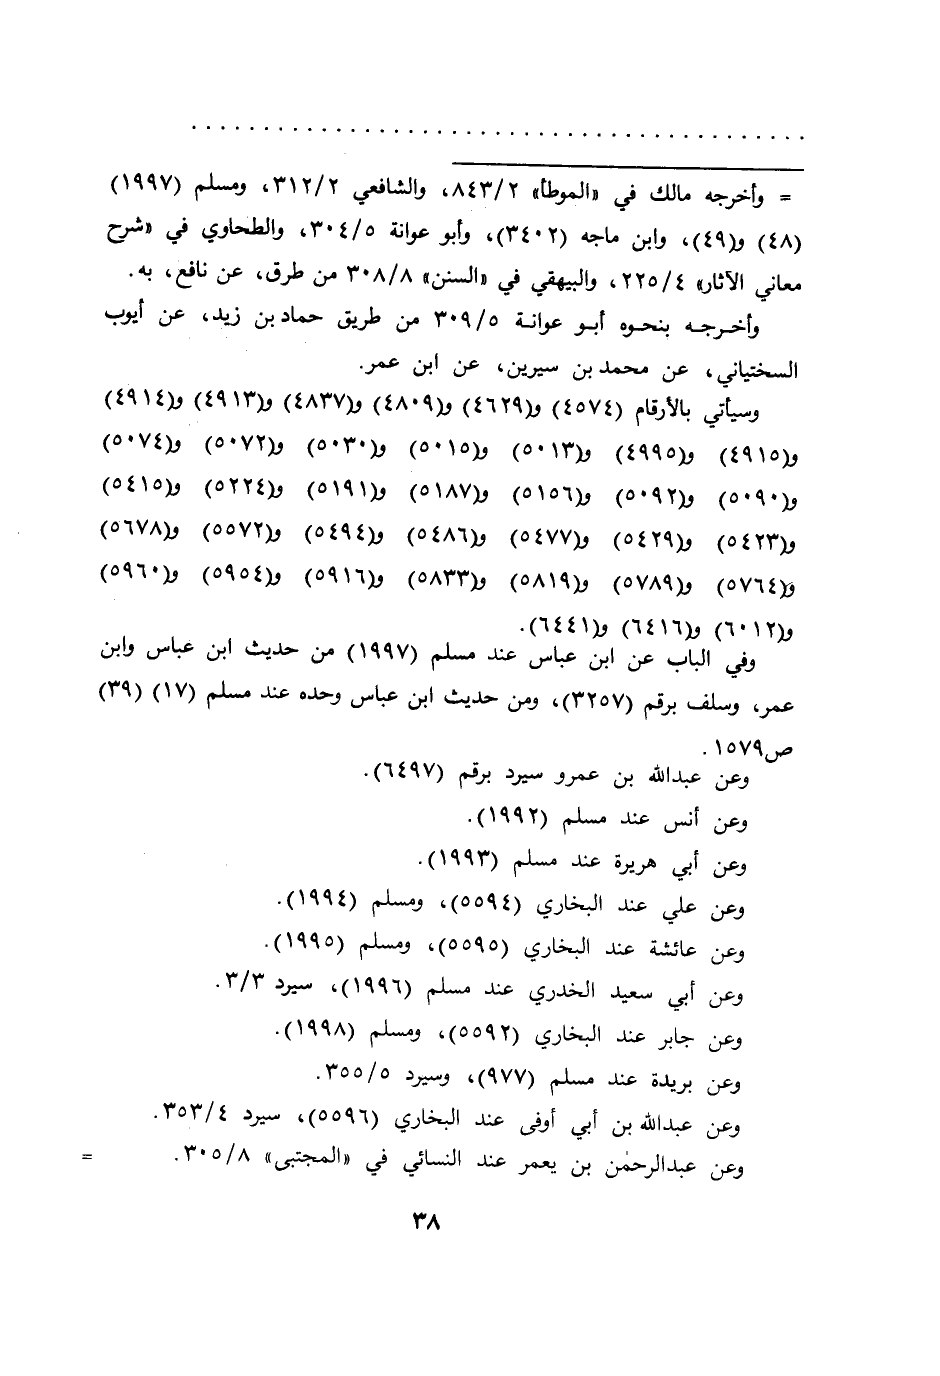 . . . . . . . . . . . . . . . . . . . . . . . . . . . . . . . . . . . . . . . . . . .
= وأخرجه مالك في «الموطأ» ٨٤٣/٢، والشافعي ٣١٢/٢، ومسلم (١٩٩٧)
(٤٨) و(٤٩)، وابن ماجه (٣٤٠٢)، وأبو عوانة ٣٠٤/٥، والطحاوي في «شرح
معاني الآثار» ٢٢٥/٤، والبيهقي في «السنن» ٣٠٨/٨ من طرق، عن نافع، به.
وأخرجه بنحوه أبو عوانة ٣٠٩/٥ من طريق حماد بن زيد، عن أيوب
السختياني، عن محمد بن سيرين، عن ابن عمر.
وسيأتي بالأرقام (٤٥٧٤) و(٤٦٢٩) و(٤٨٠٩) و(٤٨٣٧) و(٤٩١٣) و(٤٩١٤)
و(٤٩١٥) و(٤٩٩٥) و(٥٠١٣) و(٥٠١٥) و(٥٠٣٠) و(٥٠٧٢) و(٥٠٧٤)
و(٥٠٩٠) و(٥٠٩٢) و(٥١٥٦) و(٥١٨٧) و(٥١٩١) و(٥٢٢٤) و(٥٤١٥)
و(٥٤٢٣) و(٥٤٢٩) و(٥٤٧٧) و(٥٤٨٦) و(٥٤٩٤) و(٥٥٧٢) و(٥٦٧٨)
و(٥٧٦٤) و(٥٧٨٩) و(٥٨١٩) و(٥٨٣٣) و(٥٩١٦) و(٥٩٥٤) و(٥٩٦٠)
و(٦٠١٢) و(٦٤١٦) و(٦٤٤١).
وفي الباب عن ابن عباس عند مسلم (١٩٩٧) من حديث ابن عباس وابن
عمر، وسلف برقم (٣٢٥٧)، ومن حديث ابن عباس وحده عند مسلم (١٧) (٣٩)
ص١٥٧٩.
وعن عبدالله بن عمرو سيرد برقم (٦٤٩٧).
وعن أنس عند مسلم (١٩٩٢).
وعن أبي هريرة عند مسلم (١٩٩٣).
وعن علي عند البخاري (٥٥٩٤)، ومسلم (١٩٩٤).
وعن عائشة عند البخاري (٥٥٩٥)، ومسلم (١٩٩٥).
وعن أبي سعيد الخدري عند مسلم (١٩٩٦)، سيرد ٣/٣.
وعن جابر عند البخاري (٥٥٩٢)، ومسلم (١٩٩٨).
وعن بريدة عند مسلم (٩٧٧)، وسيرد ٣٥٥/٥.
وعن عبدالله بن أبي أوفى عند البخاري (٥٥٩٦)، سيرد ٣٥٣/٤.
وعن عبدالرحمٰن بن يعمر عند النسائي في «المجتبى» ٣٠٥/٨. =
٣٨